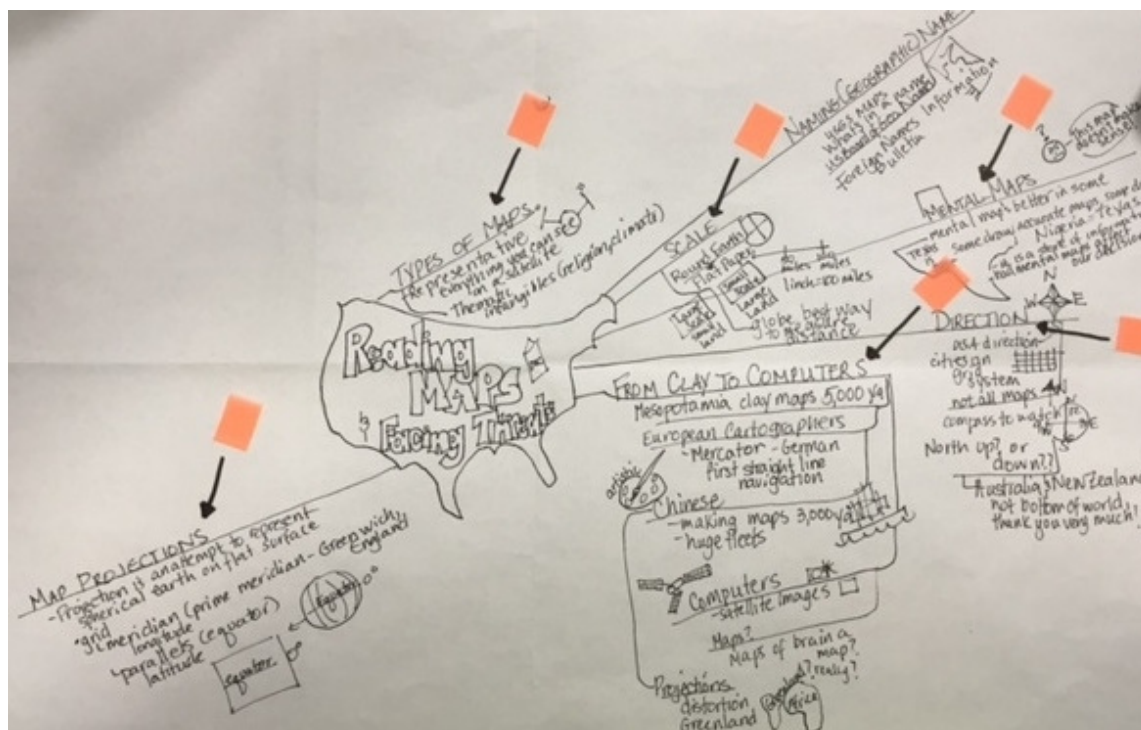 Reading
MAPS
&
Facing
TYPES OF MAPS
Representative
everything you can see
on a satellite
Thematic
intangibles (religion, climate)
SCALE
Round Earth
Flat Paper
Small
Scale
Large
Land
Large
Scale
Small
land
miles
miles
1 inch = 100 miles
globe best way
to measure
distance
NAMING (GEOGRAPHIC NAMES
USGS MAPS
What's in a name
US Board of Geo Names
Foreign Names Information
Bulletin
MENTAL MAPS
? This map
doesn't make
sense!
mental maps better in some
some draw accurate maps, some
Texas
Nigeria - Texas
is a store of information
mental maps affect
our decision
DIRECTION
N
W
E
as a direction
cities on
grid
system
not all maps
compass to watch
N
E
S
North up? or
down??
Australia & New Zealand
not bottom of world
thank you very much!
FROM CLAY TO COMPUTERS
Mesopotamia clay maps 5,000 ya
European Cartographers
- Mercator - German
first straight line
navigation
artistic
Chinese
- making maps 3,000 ya
- huge fleets
Computers
- satellite images
Maps?
Maps of brain a
map?
really?
Projections
distortion
Greenland
Greenland?
Africa
MAP PROJECTIONS
- Projection is an attempt to represent
spherical earth on flat surface
• grid
meridian (prime meridian - Greenwich,
England
longitude
parallels (equator)
latitude
Equator
0°
equator
0°